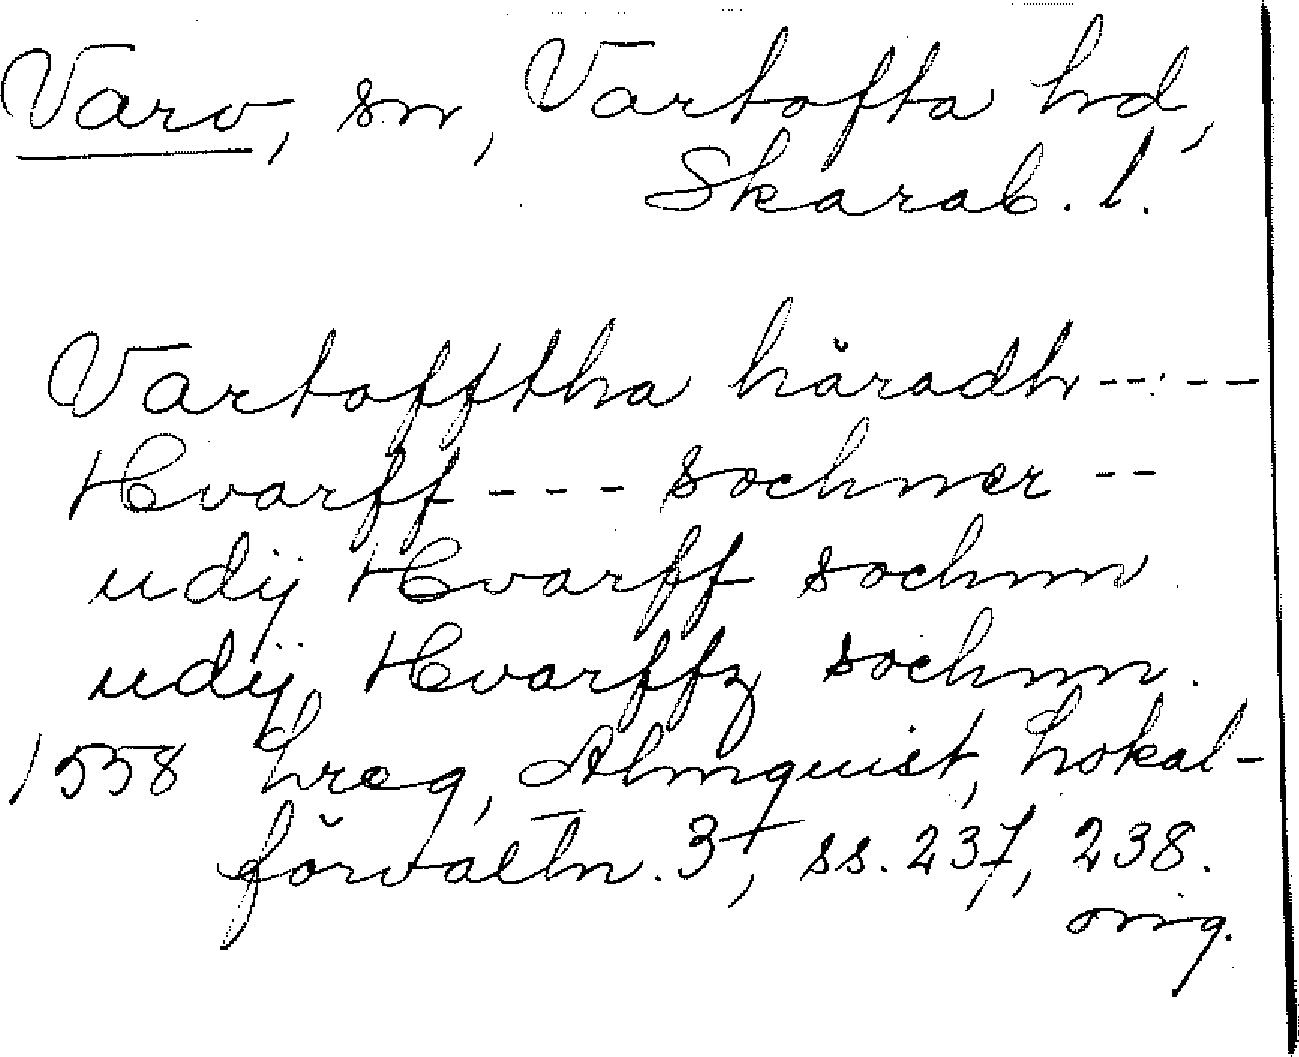 Varv, sn, Vartofta hd,
Skarab. l.
Vartofftha häradh -----
Hvarff --- sochner --
udij Hvarff sochnn
udij Hvarffz sochnn.
1558 hreg, Almquist, Lokal-
förvaltn. 3, ss. 237, 238.
orig.